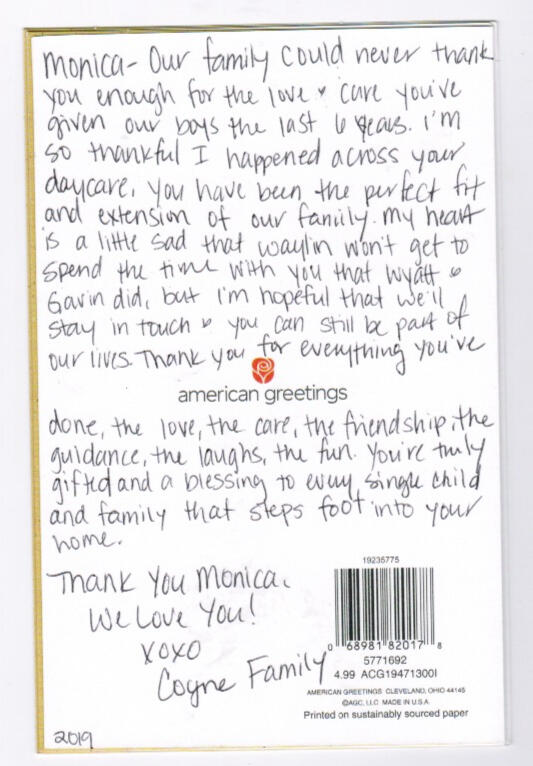 Monica- Our family could never thank
you enough for the love & care you've
given our boys the last 6 years. I'm
so thankful I happened across your
daycare, you have been the perfect fit
and extension of our family. My heart
is a little sad that Waylin won't get to
spend the time with you that Wyatt &
Gavin did, but I'm hopeful that we'll
stay in touch & you can still be part of
our lives. Thank you for everything you've
american greetings
done, the love, the care, the friendship, the
guidance, the laughs, the fun. You're truly
gifted and a blessing to every single child
and family that steps foot into your
home.
Thank You Monica.
We Love You!
XOXO
Coyne Family
19235775
0 68981 82017 8
5771692
4.99 ACG19471300I
AMERICAN GREETINGS CLEVELAND, OHIO 44145
©AGC, LLC MADE IN U.S.A.
Printed on sustainably sourced paper
2019